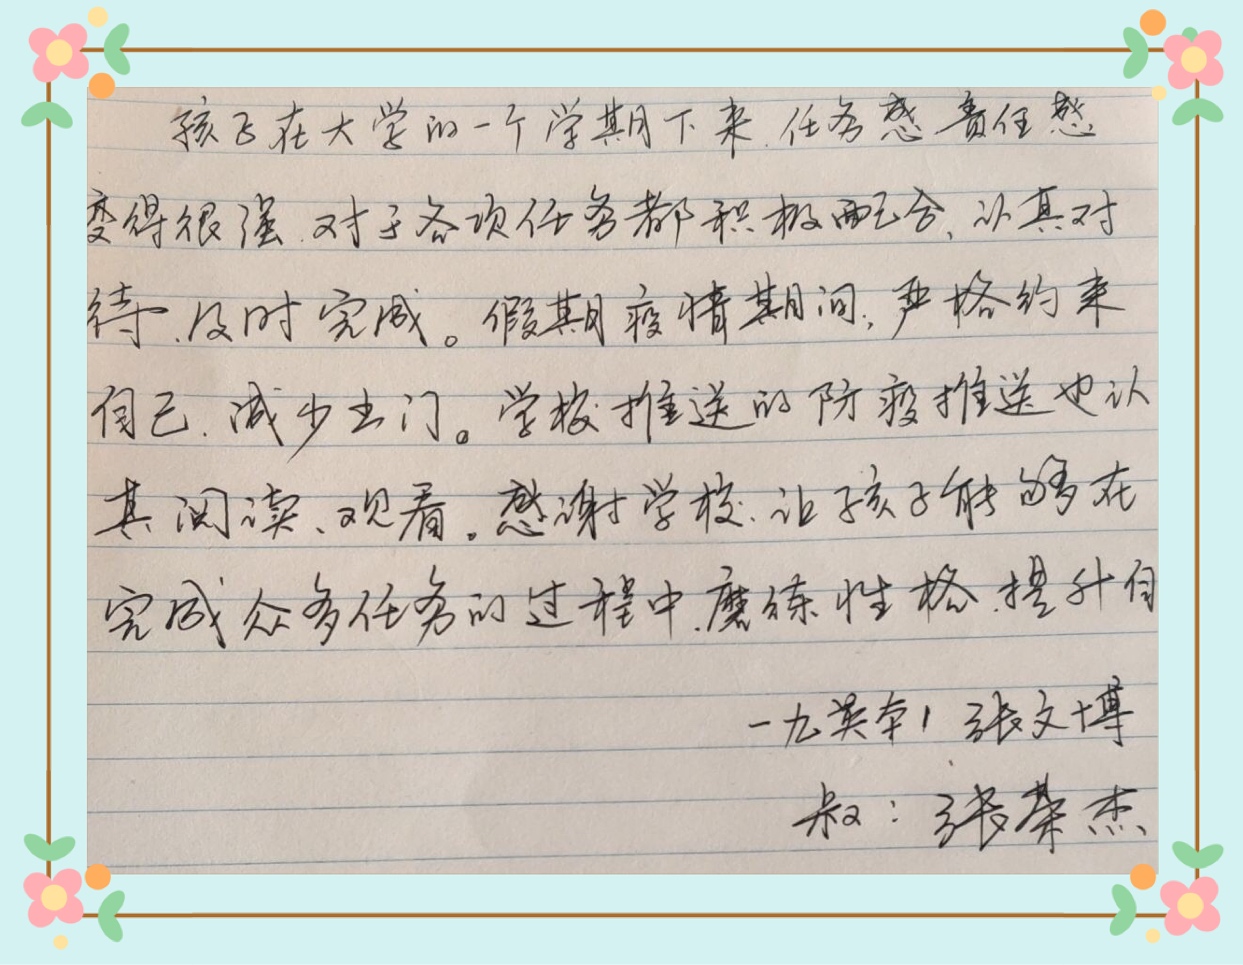 孩子在大学的一个学期下来,任务感责任感
变得很强,对于各项任务都积极配合,认真对
待,及时完成。假期疫情期间,严格约束
自己,减少出门。学校推送的防疫推送也认
真阅读、观看。感谢学校,让孩子能够在
完成众多任务的过程中,磨练性格,提升自
一九英本1 张文博
叔:张荣杰